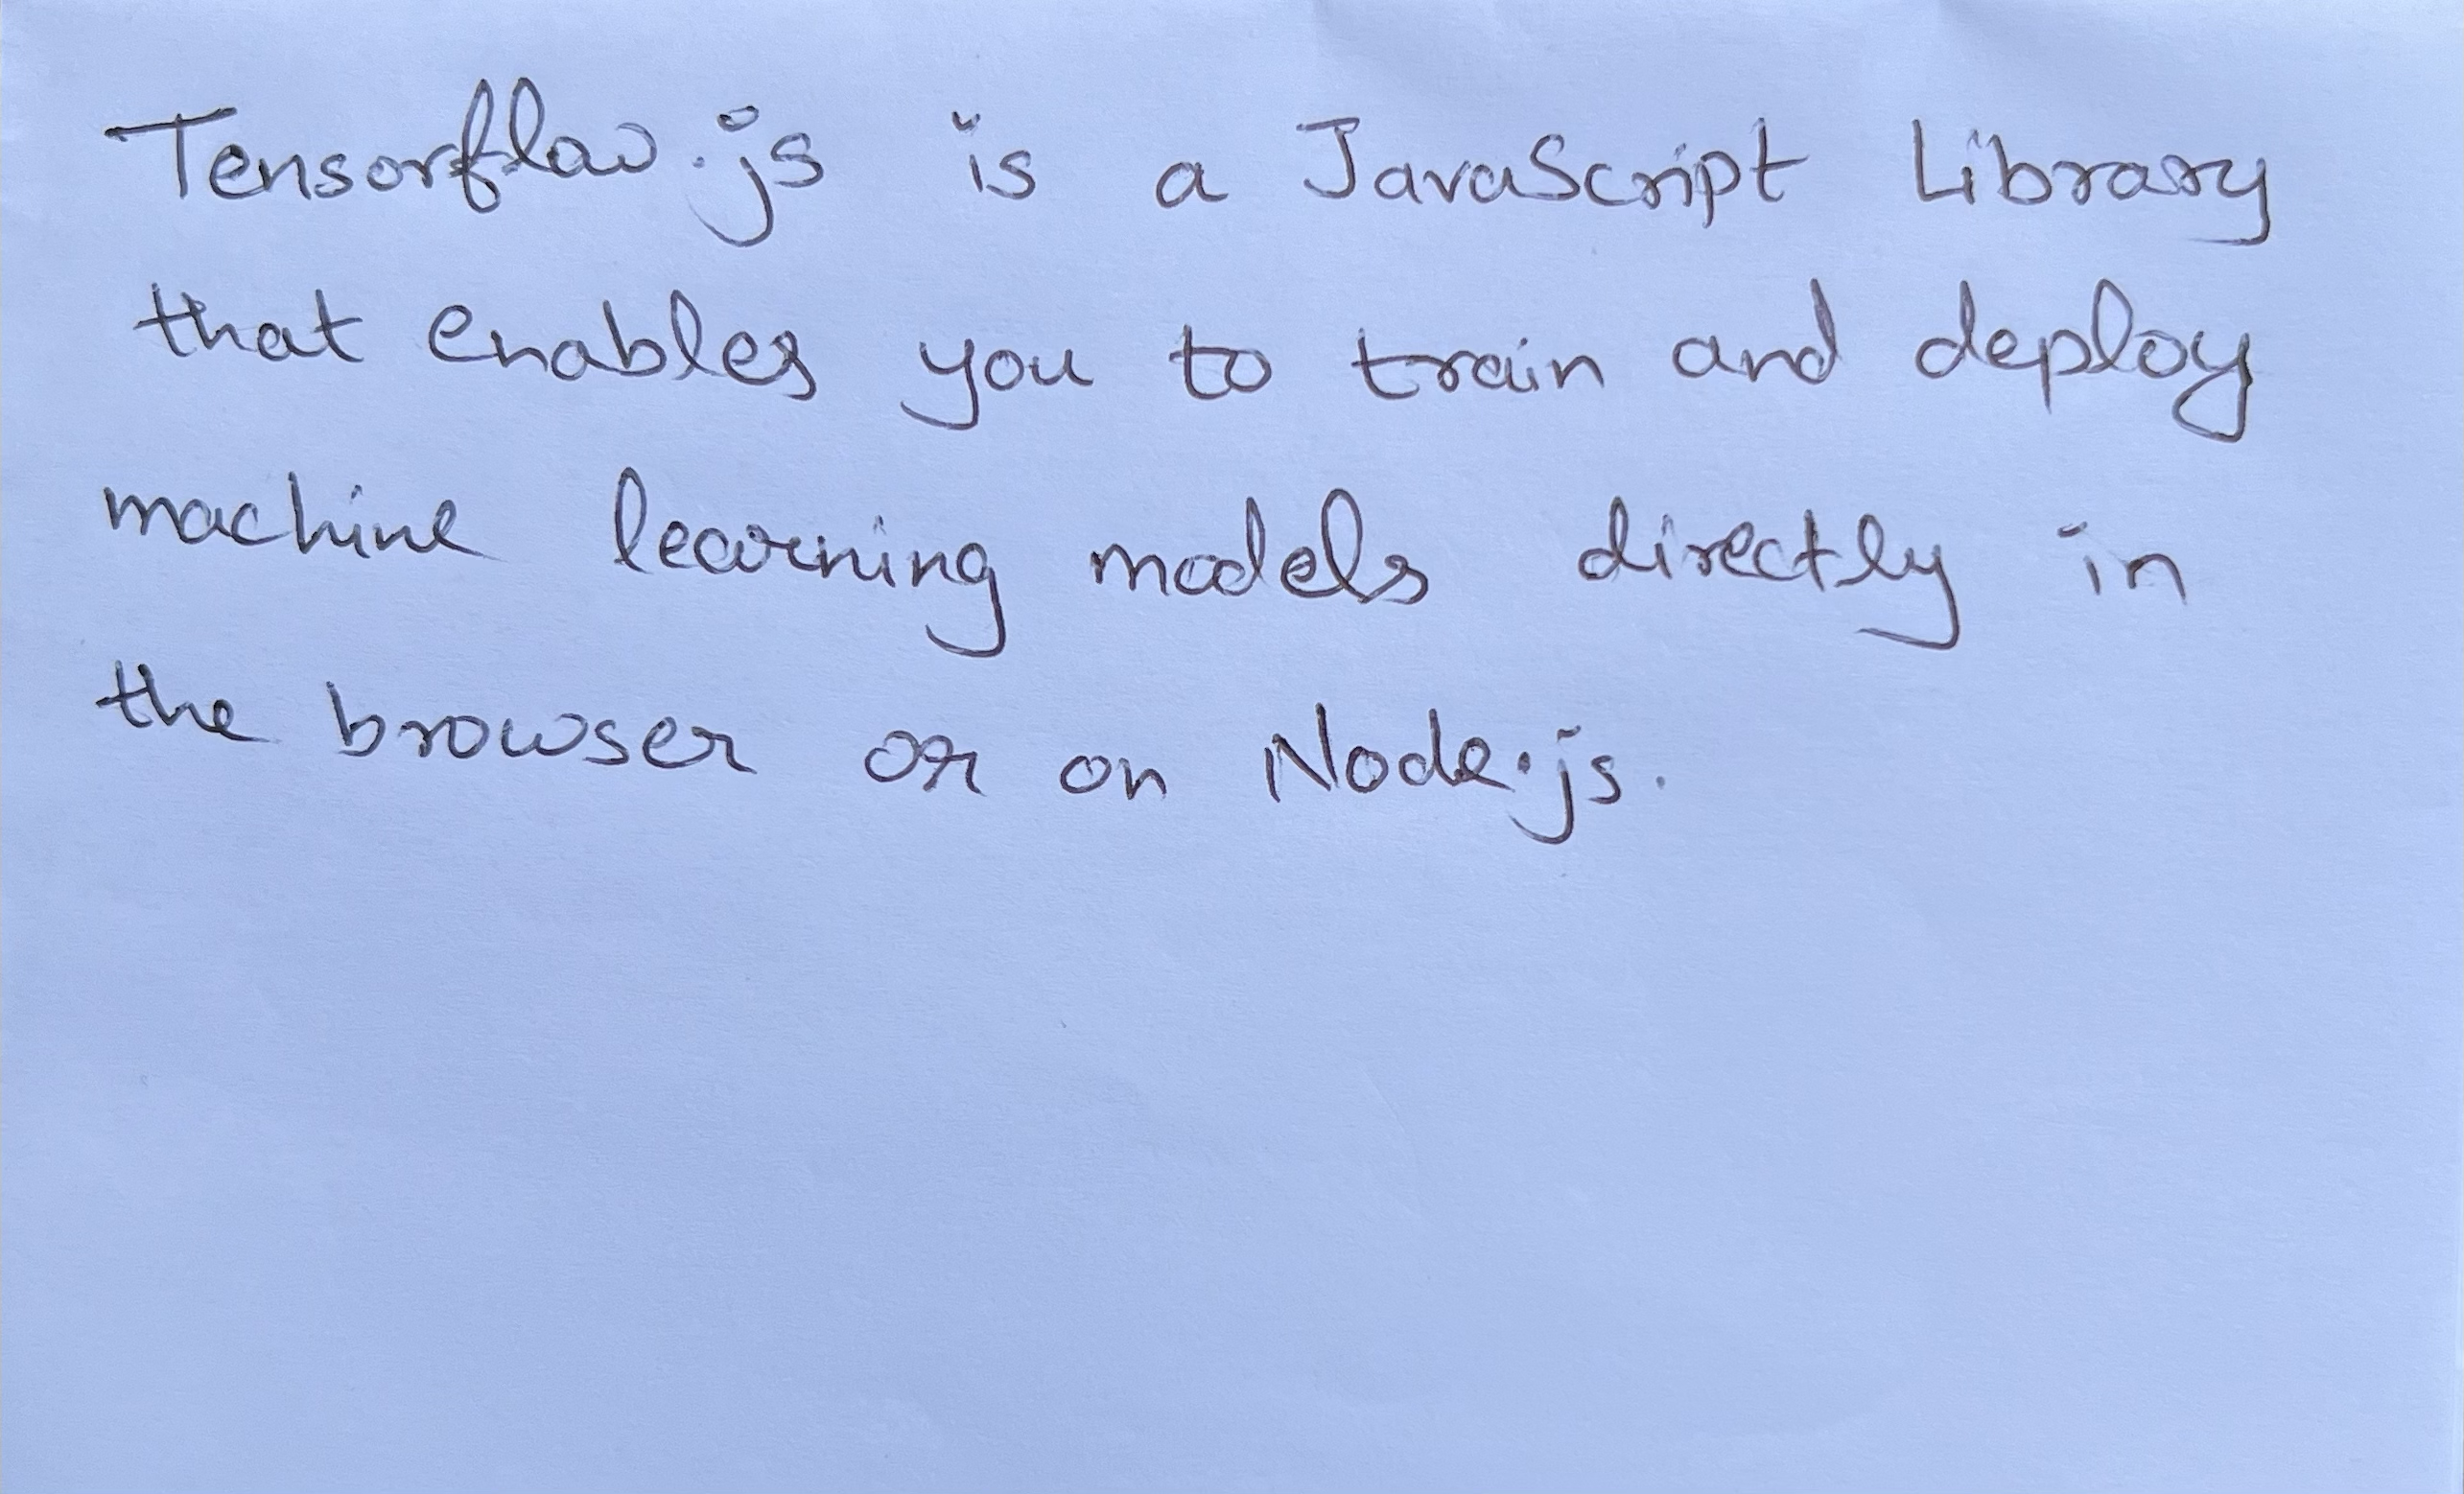 Tensorflow.js is a JavaScript Library
that enables you to train and deploy
machine learning models directly in
the browser or on Node.js.